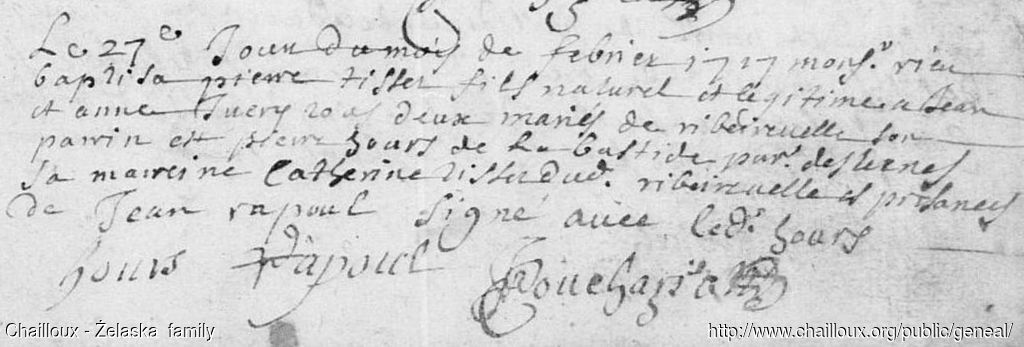 Le 27e Jour du mois de febrier 1717 monsr. rieu
baptisa pierre tisset fils naturel et legitime a Jean
et anne Juery tous deux mariés de ribeirevelle son
parrin est pierre hours de la bastide par. des
Sa mareine Catherine tisset dud. ribeirevelle es presances
de Jean rapoul signé avec led. hours
hours Rapoul
Chailloux - Żelaska family
http://www.chailloux.org/public/geneal/